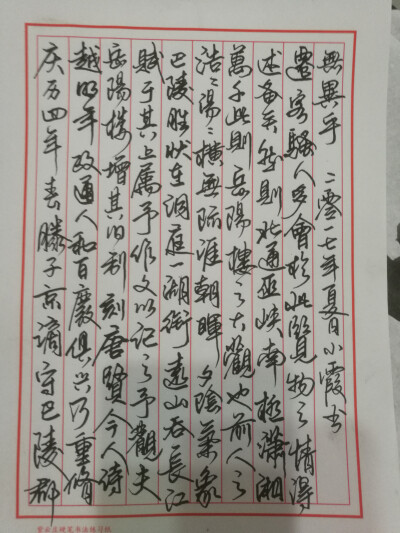 庆历四年春滕子京谪守巴陵郡
越明年政通人和百廢俱兴乃重脩
岳陽樓增其旧制刻唐賢今人诗
赋于其上属予作文以记之予觀夫
巴陵胜状在洞庭一湖衔遠山吞長江
浩〻湯〻横無际涯朝暉夕陰氣象
萬千此則岳陽樓之大觀也前人之
述备矣然則北通巫峡南极潇湘
遷客騷人多會於此覽物之情得
無異乎 二零一七年夏日小霞书